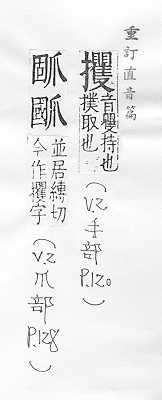 重訂直音篇
攫音矍持也
撲取也
(V.2手部P.120)
並居縛切
今作攫字
(V.2爪部P.128)